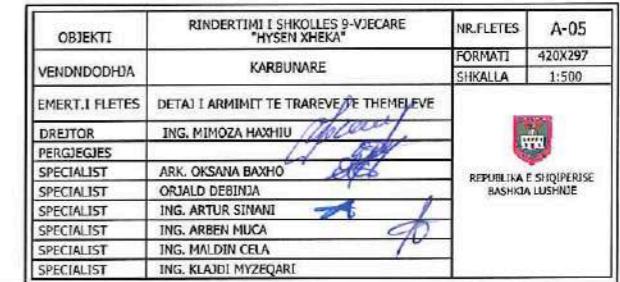 OBJEKTI RINDERTIMI I SHKOLLES 9-VJECARE "HYSEN XHEKA" NR.FLETES A-05
VENDNDODHJA KARBUNARE FORMATI 420X297
SHKALLA 1:500
EMERT.I FLETES DETAJ I ARMIMIT TE TRAREVE TE THEMELEVE
DREJTOR ING. MIMOZA HAXHIU
PERGJEGJES
SPECIALIST ARK. OKSANA BAXHO
SPECIALIST ORJALD DEBINJA
SPECIALIST ING. ARTUR SINANI
SPECIALIST ING. ARBEN MUCA
SPECIALIST ING. MALDIN CELA
SPECIALIST ING. KLAJDI MYZEQARI
REPUBLIKA E SHQIPERISE
BASHKIA LUSHNJE